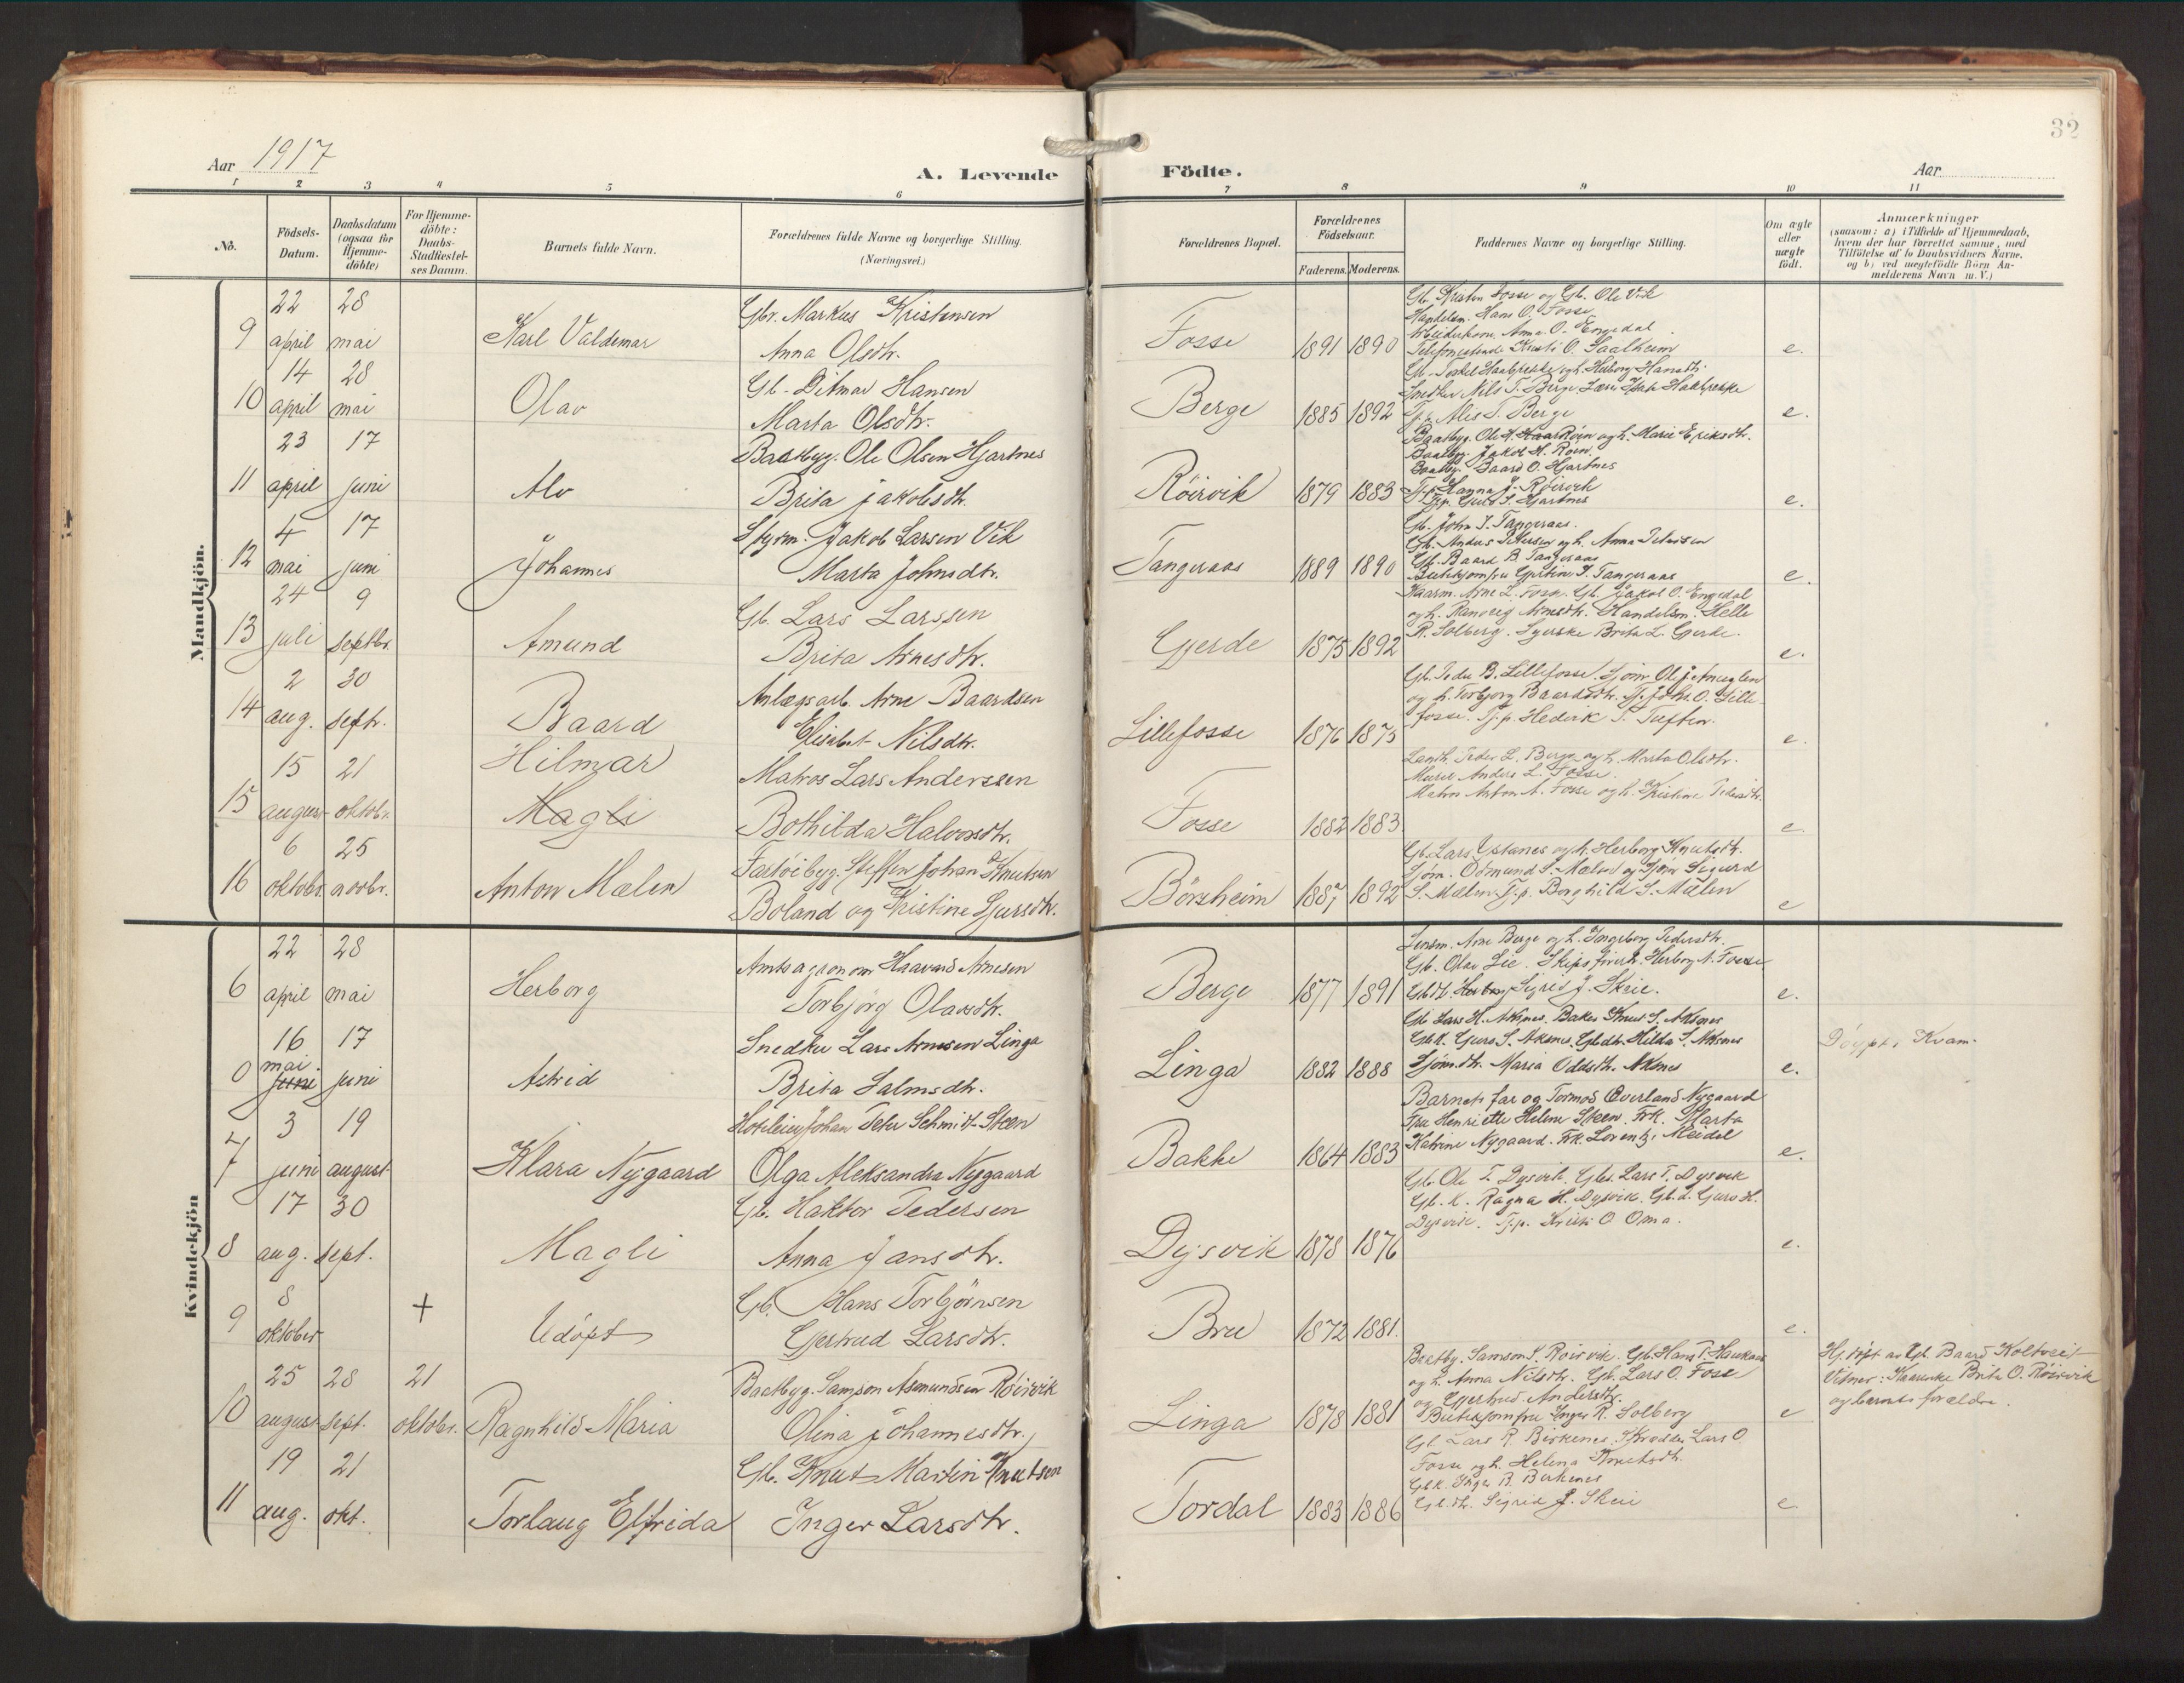 32
Aar 1917
A. Levende
Födte.
Aar
1 2 3 4 5 6 7 8 9 10 11
No.
Födsels-
Datum.
Daabsdatum
(ogsaa for
Hjemme-
döbte)
For Hjemme-
döbte:
Daabs-
Stadfæstel-
ses Datum.
Barnets fulde Navn.
Forældrenes fulde Navne og borgerlige Stilling.
(Næringsvei.)
Forældrenes Bopæl.
Forældrenes
Födselsaar.
Faderens. Moderens.
Faddernes Navne og borgerlige Stilling.
Om ægte
eller
uægte
födt.
Anmærkninger
(saasom: a) i Tilfælde af Hjemmedaab,
hvem der har forrettet samme, med
Tilföielse af to Daabsvidners Navne.
og b) ved uægtefödte Börn An-
melderens Navn m. V.)
Mandkjön.
9
22 april
28 mai
Karl Valdemar
Gbr. Markus Kristensen
Anna Olsdtr.
Fosse
1891 1890
Gb. Kristen Fosse og Gb. Ole Vik
Handelsm. Hans O. Fosse
Anna O. Engedal
O. Saalheim
e.
10
14 april
28 mai
Olav
Gb. Ditmar Hansen
Marta Olsdtr.
Berge
1885 1892
Snedker Nils T. Berge
Berge
e.
11
23 april
17 juni
Alv
Baatbyg. Ole Olsen Hjartnes
Brita Jakobsdtr.
Röirvik
1879 1883
Baatbyg. Ole H. Röen og h. Marie Eriksdtr.
Baatbyg. Jakob H. Röen
Baatby. Baard O. Hjartnes
Tjp. Hanna J. Röirvik
Hjartnes
e.
12
4 mai
17 juni
Johannes
Styrm. Jakob Larsen Vik
Marta Johnsdtr.
Tangeraas
1889 1890
Gb. John J. Tangeraas.
og h. Anna
Gb. Baard B. Tangeraas
J. Tangeraas
e.
13
24 juli
9 septbr.
Amund
Gb. Lars Larssen
Brita Arnesdtr.
Gjerde
1875 1892
Arne L. Fosse. Gb. Jakob O. Engedal
og h. Ranveig Arnesdtr. Handelsm. Helle
R. Solberg. Syerske Brita L. Gjerde.
e.
14
2 aug.
30 septr.
Baard
Anlægsarb. Arne Baardsen
Elisabet Nilsdtr.
Lillefosse
1876 1875
Gb. Peder B. Lillefosse.
og h. Torbjorg Baardsdtr. O. Lille-
fosse. Tj.p. T. Tuften.
e.
15
15 august
21 oktobr.
Hilmar
Magli
Matros Lars Anderssen
Bothilda Halvorsdtr.
Fosse
1882 1883
Peder L. Berge og h. Marta Olsdtr.
Murer Anders L. Fosse.
Matros Anton A. Fosse og h. Kristine Pedersdtr.
e.
16
6 oktobr.
25 novbr.
Anton Mælen
Fartöibyg. Steffen Johan Knutsen
Boland og Kristine Sjursdtr.
Börsheim
1887 1892
Gb. Lars Ystanes og h. Herborg Knutsdtr.
Sjöm. S. Mælen og Sjöm Sigurd
S. Mælen. Tj.p. Borghild S. Mælen
e
Kvindekjön
6
22 april
28 mai
Herborg
Amtsagronom Haavard Arnesen
Torbjörg Olavsdtr.
Berge
1877 1891
Lensm. Arne Berge og h. Ingeborg Pedersdtr.
Gb. Olav Lie. Herborg A. Fosse
Sigrid J. Skeie.
e.
0
16 mai
juni
17 juni
Astrid
Snedker Lars Arnesen Linga
Brita Salmsdtr.
Linga
1882 1888
Gb Lars H. Aksnes. Baker Knut S. Aksnes
Gbk. Guro S. Aksnes. Gbdtr. Hilda S. Aksnes
Sjömdtr. Maria Oddsdtr. Aksnes
e.
Döypt i Kvam.
7
3 juni
19 august
Klara Nygaard
Hoteleier Johan Peter Schmidt Steen
Olga Aleksandra Nygaard
Bakke
1864 1883
Barnets far og Tormod Överland Nygaard
Fru Henriette Helene Steen Frk. Marta
Katrine Nygaard. Frk. Lorentze Meidel
e.
8
17 aug.
30 sept.
Magli
Gb. Haktor Pedersen
Anna Jansdtr.
Dysvik
1878 1876
Gb. Ole T. Dysvik. Gbs. Lars T. Dysvik
Gb. K. Ragna H. Dysvik. Gb.d. Guro H.
Dysvik. Tj.p. O. Oma.
e.
9
8 oktober
+
Udöpt
Gb. Hans Torbjörnsen
Gjertrud Larsdtr.
Bru
1872 1881.
e.
10
25 august
28 sept.
21 oktobr.
Ragnhild Maria
Baatbyg. Samson Asmundsen Röirvik
Olina Johannesdtr.
Linga
1878 1881
Baatby. Samson S. Röirvik. Gb. Hans T.
og h. Anna Nilsdtr. Gb. Lars O. Fosse
og Gjertrud Andersdtr.
Inger R. Solberg
e
Hj. döpt av Gb. Baard Koltveit
Vitner: Brita O. Röirvik
og barnets forældre.
11
19 aug.
21 okt.
Torlaug Elfrida
Gb. Knut Martin Knutsen
Inger Larsdtr.
Tordal
1883 1886
Gb. Lars R. Birkenes. Skrædder Lars O.
Fosse og h. Helena Knutsdtr.
Gbk. Inger B. Birkenes
Gb.dtr. Sigrid J. Skeie
e.